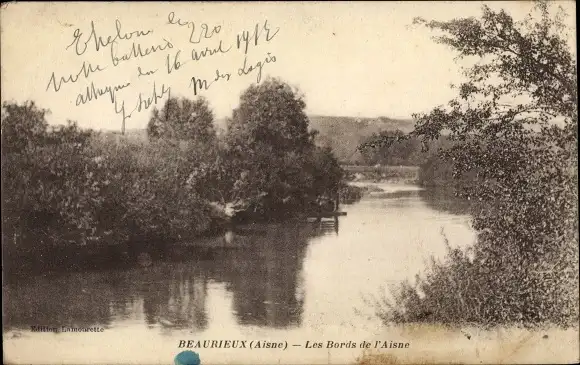 Echelon de
notre batterie 220
attaque du 16 avril 1917
M des Logis
Edition Lamourette
BEAURIEUX (Aisne) — Les Bords de l'Aisne